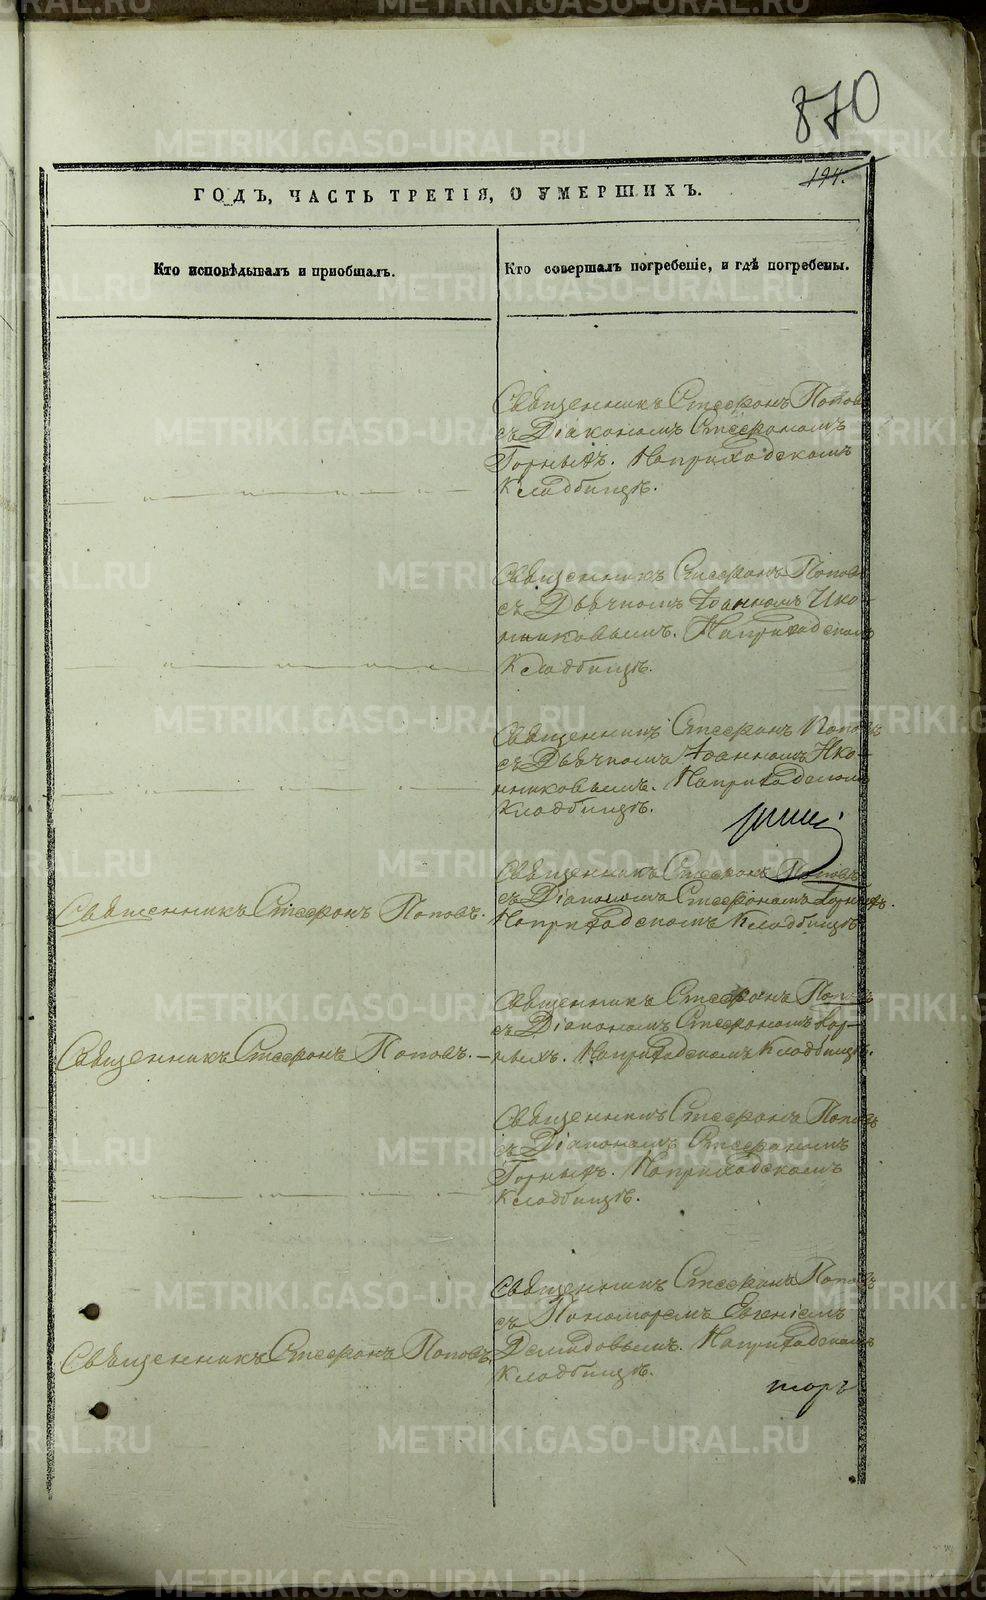 870
194.
ГОДЪ, ЧАСТЬ ТРЕТІЯ, О УМЕРШИХЪ.
Кто исповѣдывалъ и приобщалъ.
Кто совершалъ погребеніе, и гдѣ погребены.
Священникъ Стефонъ Попов
съ Діакономъ Стефономъ
Горныхъ. На приходскомъ
Кладбищѣ.
Священникъ Стефонъ Попов
съ Дьячкомъ Іоанномъ Ико-
нниковымъ. На приходском
Кладбищѣ.
Священникъ Стефонъ Поповъ
съ Дьячкомъ Іоанномъ Ико-
нниковымъ. На приходском
Кладбищѣ.
Священникъ Стефонъ Поповъ.
Священникъ Стефонъ Поповъ
съ Діакономъ Стефономъ Горныхъ.
На приходскомъ Кладбищѣ
Священникъ Стефонъ Поповъ.
Священникъ Стефонъ Поповъ
съ Діакономъ Стефономъ Гор-
ныхъ. На приходскомъ Кладбищѣ.
Священникъ Стефонъ Поповъ
съ Діакономъ Стефономъ
Горныхъ. На приходскомъ
Кладбищѣ.
Священникъ Стефонъ Поповъ
Священникъ Стефонъ Поповъ
съ Пономоремъ Евгеніемъ
Демидовымъ. На приходском
Кладбищѣ.
METRIKI.GASO-URAL.RU